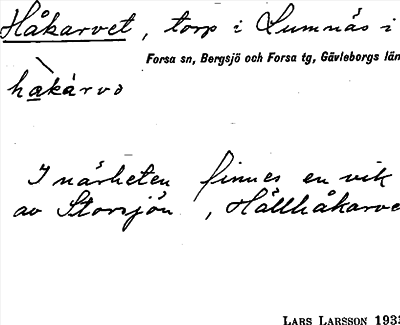 Håkarvet, torp i Sumnäs i
Forsa sn, Bergsjö och Forsa tg, Gävleborgs län
hakàrvo
I närheten finnes en vik
av Storsjön, Hållhåkarve
LARS LARSSON 193